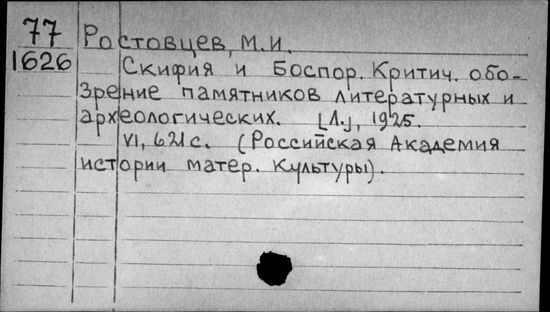 77 Ростовцев, М.И.
1626 Скифия и Боспор. Критич. обо-
зрение памятников литературных и
археологических. [Л.], 1925.
VI, 621 с. (Российская Академия
истории матер. культуры).